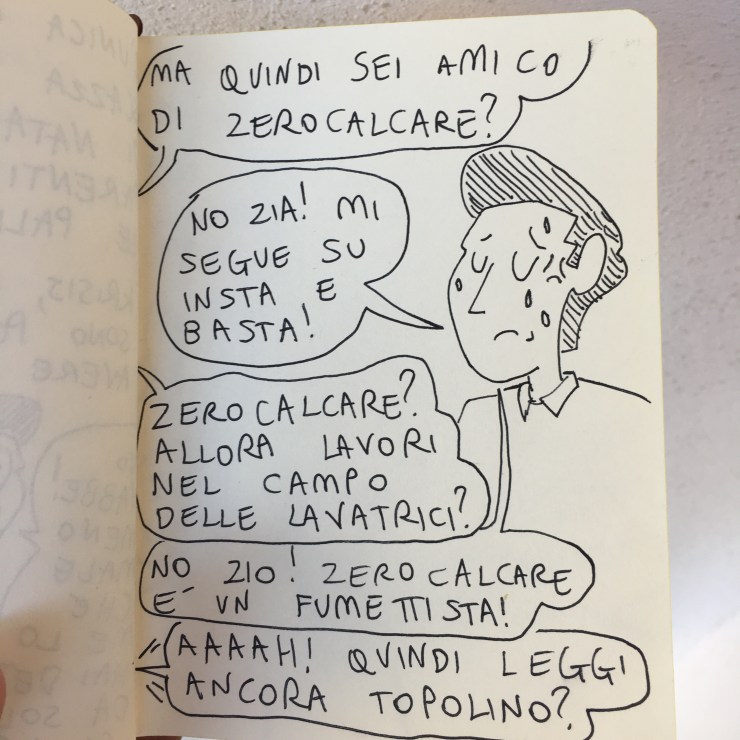 MA QUINDI SEI AMICO
DI ZEROCALCARE?
NO ZIA! MI
SEGUE SU
INSTA E
BASTA!
ZEROCALCARE?
ALLORA LAVORI
NEL CAMPO
DELLE LAVATRICI?
NO ZIO! ZEROCALCARE
E' UN FUMETTISTA!
AAAAH! QUINDI LEGGI
ANCORA TOPOLINO?